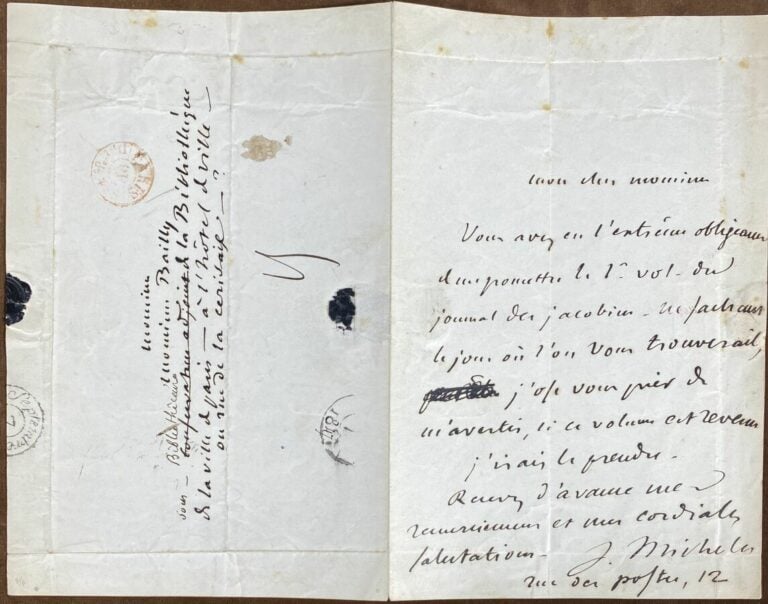 monsieur
monsieur Bailly
sous-Bibliothécaire
Conservateur adjoint de la Bibliothèque
de la ville de paris — à l'hôtel de ville —
ou rue de la cerisaie — ?
PARIS
Septembre
7
mon cher monsieur
Vous avez eu l'extrême obligeance
de me promettre le 1er vol. du
journal des jacobins. ne sachant
le jour où l'on vous trouverait,
j'ose vous prier de
m'avertir, si ce volume est revenu
j'irais le prendre.
Recevez d'avance mes
remerciemens et mes cordiales
salutations. J. Michelet
rue des postes, 12